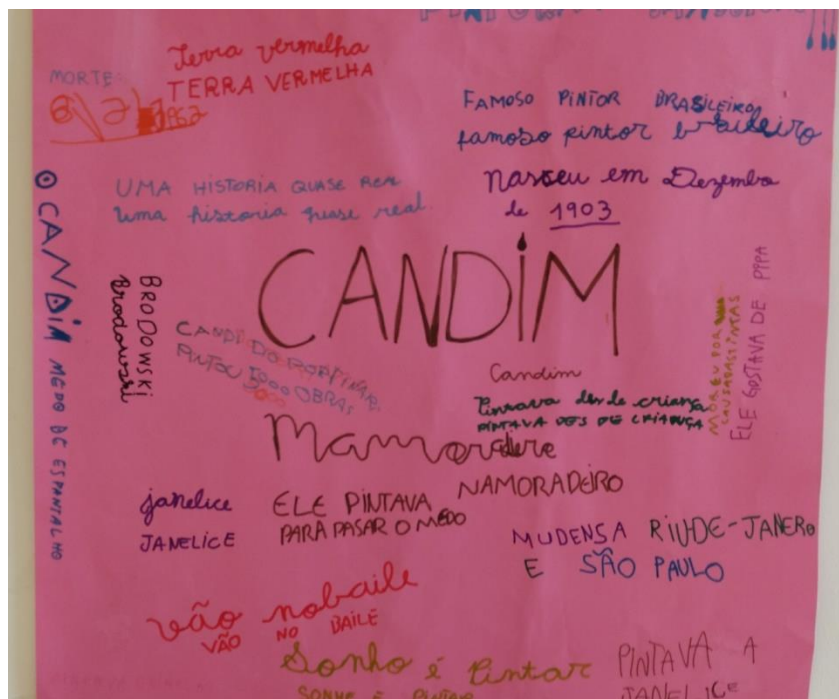 Terra vermelha
TERRA VERMELHA
MORTE
FAMOSO PINTOR BRASILEIRO
famoso pintor brasileiro
UMA HISTORIA QUASE REAL
uma historia quase real
nasceu em Dezembro
de 1903
O CANDIM MEDO DE ESPANTALHO
BRODOWSKI
Brodowski
CANDIM
CANDIDO PORTINARI
PINTOU 5000 OBRAS
Candim
Pintava des de criança
PINTAVA DES DE CRIANÇA
MORREU POR
CAUSA DAS TINTAS
ELE GOSTAVA DE PIPA
NAMORADEIRO
janelice
JANELICE
ELE PINTAVA
PARA PASAR O MEDO
MUDENSA RIU-DE-JANERO
E SÃO PAULO
vão no baile
VÃO NO BAILE
Sonho é Pintar
PINTAVA A
JANELICE